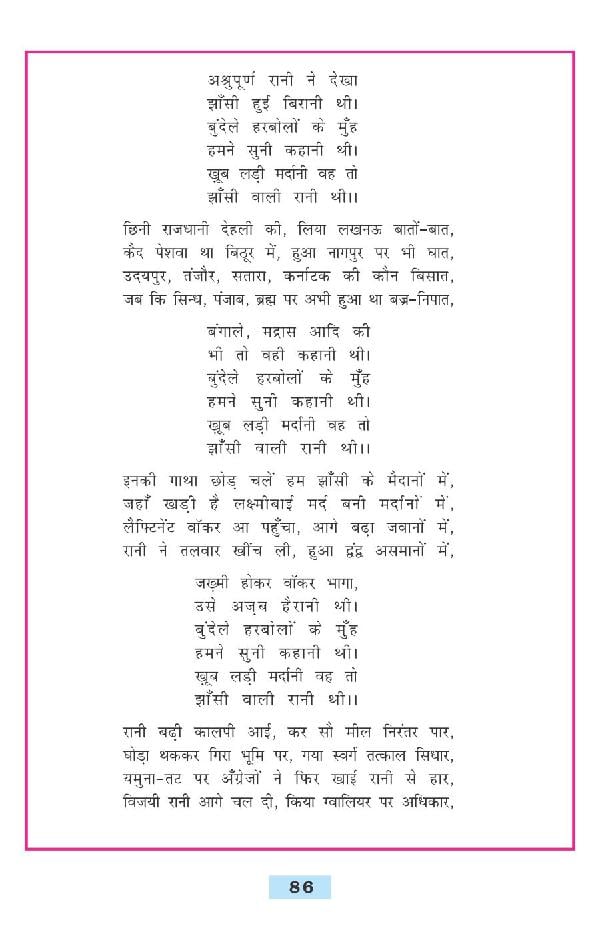 अश्रुपूर्ण रानी ने देखा
झाँसी हुई बिरानी थी।
बुंदेले हरबोलों के मुँह
हमने सुनी कहानी थी।
ख़ूब लड़ी मर्दानी वह तो
झाँसी वाली रानी थी।।
छिनी राजधानी देहली की, लिया लखनऊ बातों-बात,
कैद पेशवा था बिठूर में, हुआ नागपुर पर भी घात,
उदयपुर, तंजौर, सतारा, कर्नाटक की कौन बिसात,
जब कि सिन्ध, पंजाब, ब्रह्म पर अभी हुआ था बज्र-निपात,
बंगाले, मद्रास आदि की
भी तो वही कहानी थी।
बुंदेले हरबोलों के मुँह
हमने सुनी कहानी थी।
ख़ूब लड़ी मर्दानी वह तो
झाँसी वाली रानी थी।।
इनकी गाथा छोड़ चलें हम झाँसी के मैदानों में,
जहाँ खड़ी है लक्ष्मीबाई मर्द बनी मर्दानों में,
लैफ्टिनेंट वॉकर आ पहुँचा, आगे बढ़ा जवानों में,
रानी ने तलवार खींच ली, हुआ द्वंद्व असमानों में,
जख़्मी होकर वॉकर भागा,
उसे अज़ब हैरानी थी।
बुंदेले हरबोलों के मुँह
हमने सुनी कहानी थी।
ख़ूब लड़ी मर्दानी वह तो
झाँसी वाली रानी थी।।
रानी बढ़ी कालपी आई, कर सौ मील निरंतर पार,
घोड़ा थककर गिरा भूमि पर, गया स्वर्ग तत्काल सिधार,
यमुना-तट पर अँग्रेजों ने फिर खाई रानी से हार,
विजयी रानी आगे चल दी, किया ग्वालियर पर अधिकार,
86